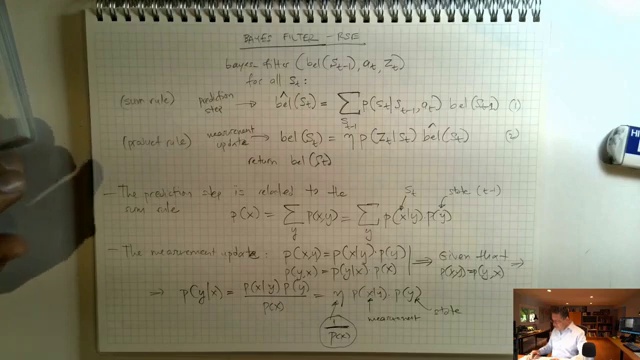 BAYES FILTER - RSE
bayes filter (bel(S_{t-1}), a_t, Z_t)
for all S_t:
(sum rule) prediction step → bel̂(S_t) = Σ_{S_{t-1}} p(S_t|S_{t-1}, a_t) bel(S_{t-1}) (1)
(product rule) measurement update → bel(S_t) = η p(Z_t|S_t) bel̂(S_t) (2)
return bel(S_t)
S_t state (t-1)
- The prediction step is related to the
sum rule p(x) = Σ_y p(x,y) = Σ_y p(x|y) p(y)
- The measurement update: p(x,y) = p(x|y) · p(y)
p(y,x) = p(y|x) p(x) ⟹ Given that p(x,y) = p(y,x) ⟹
⟹ p(y|x) = p(x|y) p(y) / p(x) = η p(x|y) · p(y)
measurement state
1/p(x)